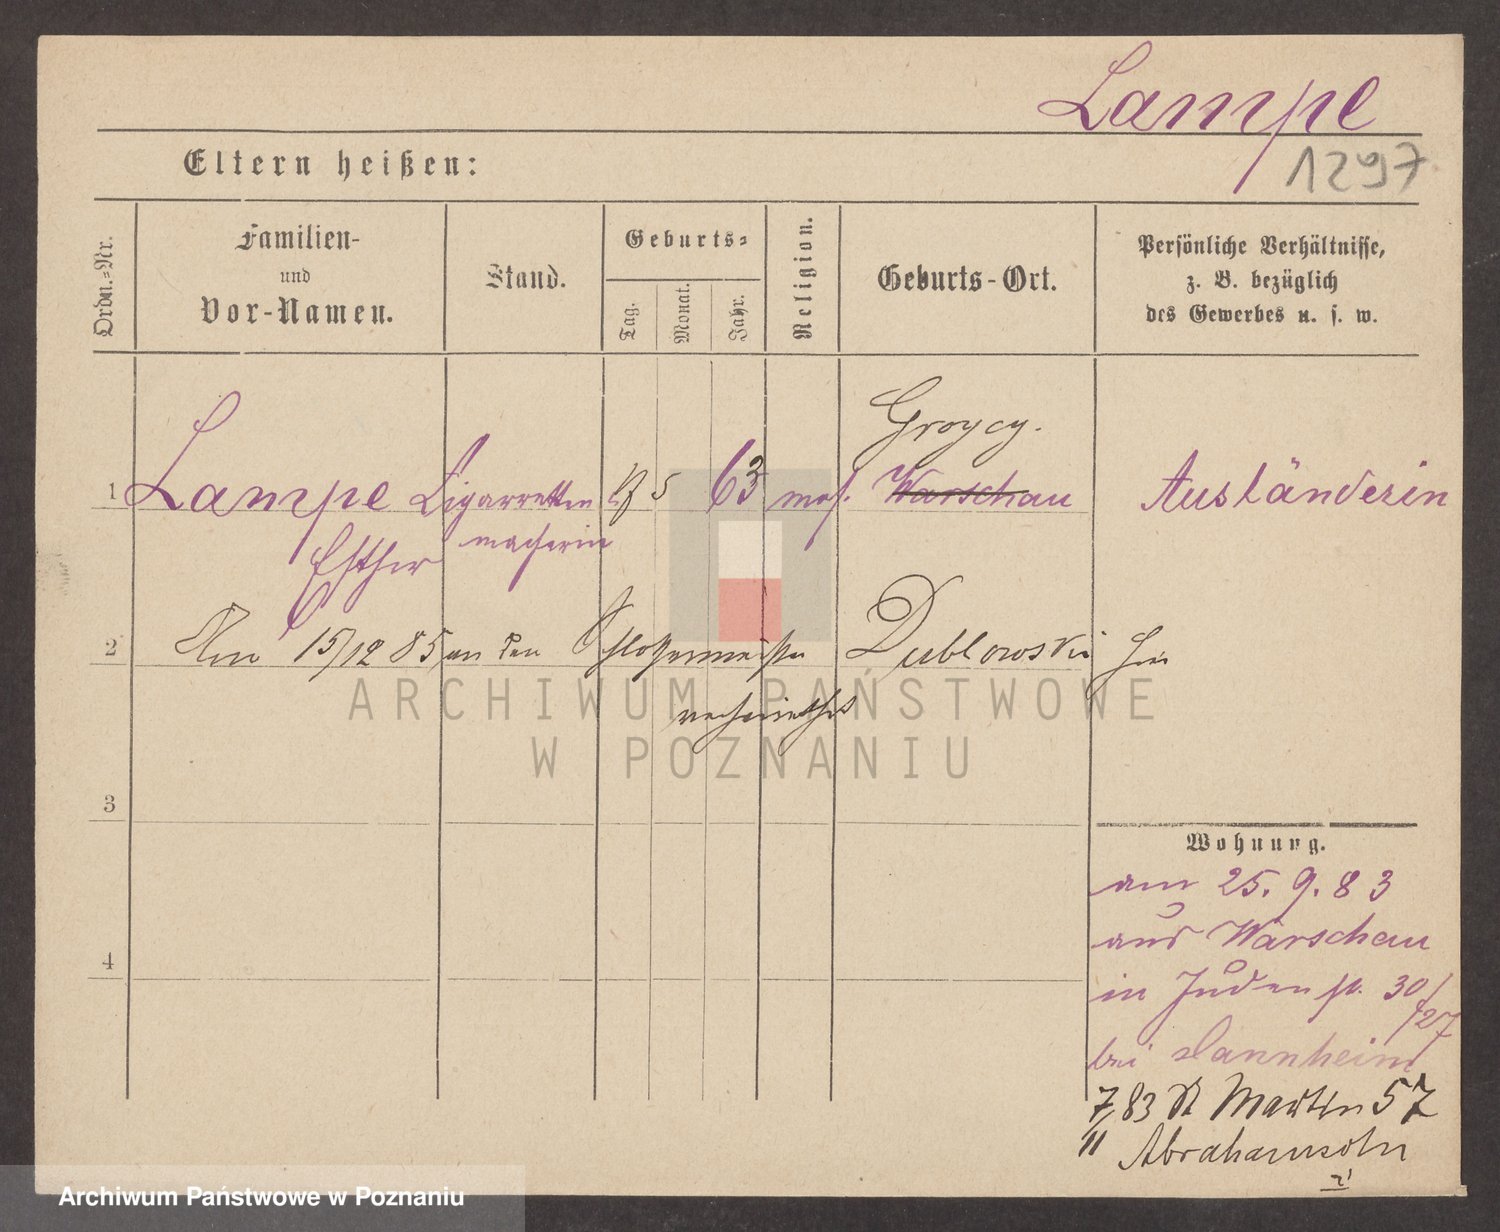 Lampe
1297
Eltern heißen:
Ordn.-Nr.
Familien-
und
Vor-Namen.
Stand.
Geburts-
Tag.
Monat.
Jahr.
Religion.
Geburts-Ort.
Persönliche Verhältnisse,
z. B. bezüglich
des Gewerbes u. s. w.
Groycy.
1 Lampe Cigarretten 5 63 mos. Warschau Ausländerin
Esther macherin
2 Am 15/12 85 an den Schlossermeister Dublowski hier
verheirathet
ARCHIWUM PAŃSTWOWE
W POZNANIU
3
Wohnung.
am 25. 9. 83
aus Warschau
4
in Judenstr. 30/
/27
bei Dannheim
7/11 83 St Martin 57
Abrahamsohn
Archiwum Państwowe w Poznaniu